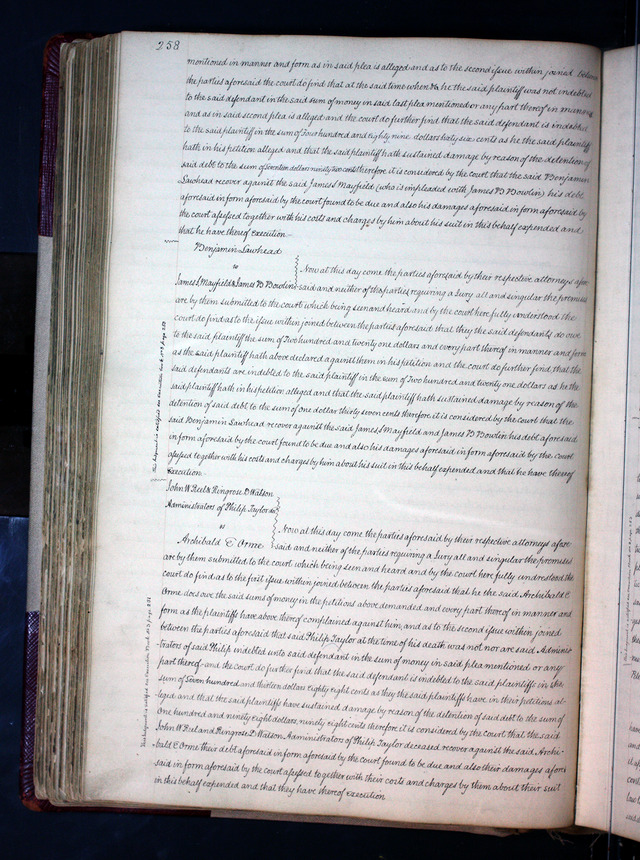 258
mentioned in manner and form as in said plea is alleged and as to the second issue within joined between
the parties aforesaid the court do find that at the said time when &c he the said plaintiff was not indebted
to the said defendant in the said sum of money in said last plea mentioned or any part thereof in manner
and as in said second plea is alleged and the court do further find that the said defendant is indebted
to the said plaintiff in the sum of Four hundred and eighty nine dollars sixty six cents as he the said plaintiff
hath in his petition alleged and that the said plaintiff hath sustained damage by reason of the detention of
said debt to the sum of Seventeen dollars ninety two cents therefore it is considered by the court that the said Benjamin
Lawhead recover against the said James S Mayfield (who is impleaded with James B Bowlin) his debt
aforesaid in form aforesaid by the court found to be due and also his damages aforesaid in form aforesaid by
the court assessed together with his costs and charges by him about his suit in this behalf expended and
that he have thereof execution
Benjamin Lawhead
vs
James S Mayfield & James B Bowlin
Now at this day come the parties aforesaid by their respective attorneys afore
said and neither of the parties requiring a Jury all and singular the premises
are by them submitted to the court which being seen and heard and by the court here fully understood the
court do find as to the issue within joined between the parties aforesaid that they the said defendants do owe
to the said plaintiff the sum of Two hundred and twenty one dollars and every part thereof in manner and form
as the said plaintiff hath above declared against them in his petition and the court do further find that the
said defendants are indebted to the said plaintiff in the sum of Two hundred and twenty one dollars as he the
said plaintiff hath in his petition alleged and that the said plaintiff hath sustained damage by reason of the
detention of said debt to the sum of one dollar thirty seven cents therefore it is considered by the court that the
said Benjamin Lawhead recover against the said James S Mayfield and James B Bowlin his debt aforesaid
in form aforesaid by the court found to be due and also his damages aforesaid in form aforesaid by the court
assessed together with his costs and charges by him about his suit in this behalf expended and that he have thereof
Execution
John W Reel & Ringrose D Watson
Administrators of Philip Taylor dec
vs
Archibald E Orme
Now at this day come the parties aforesaid by their respective attorneys afore
said and neither of the parties requiring a Jury all and singular the promises
are by them submitted to the court which being seen and heard and by the court here fully understood the
court do find as to the first issue within joined between the parties aforesaid that he the said Archibald E
Orme does owe the said sums of money in the petitions above demanded and every part thereof in manner and
form as the plaintiffs have above thereof complained against him, and as to the second issue within joined
between the parties aforesaid that said Philip Taylor at the time of his death was not nor are said Adminis
trators of said Philip indebted unto said defendant in the sum of money in said plea mentioned or any
part thereof and the court do further find that the said defendant is indebted to the said plaintiffs in the
sum of Seven hundred and thirteen dollars eighty eight cents as they the said plaintiffs have in their petitions al-
leged and that the said plaintiffs have sustained damage by reason of the detention of said debt to the sum of
One hundred and ninety eight dollars, ninety eight cents therefore it is considered by the court that the said
John W Reel and Ringrose D Watson Administrators of Philip Taylor deceased recover against the said Archi-
bald E Orme their debt aforesaid in form aforesaid by the court found to be due and also their damages afore
said in form aforesaid by the court assessed together with their costs and charges by them about their suit
in this behalf expended and that they have thereof Execution